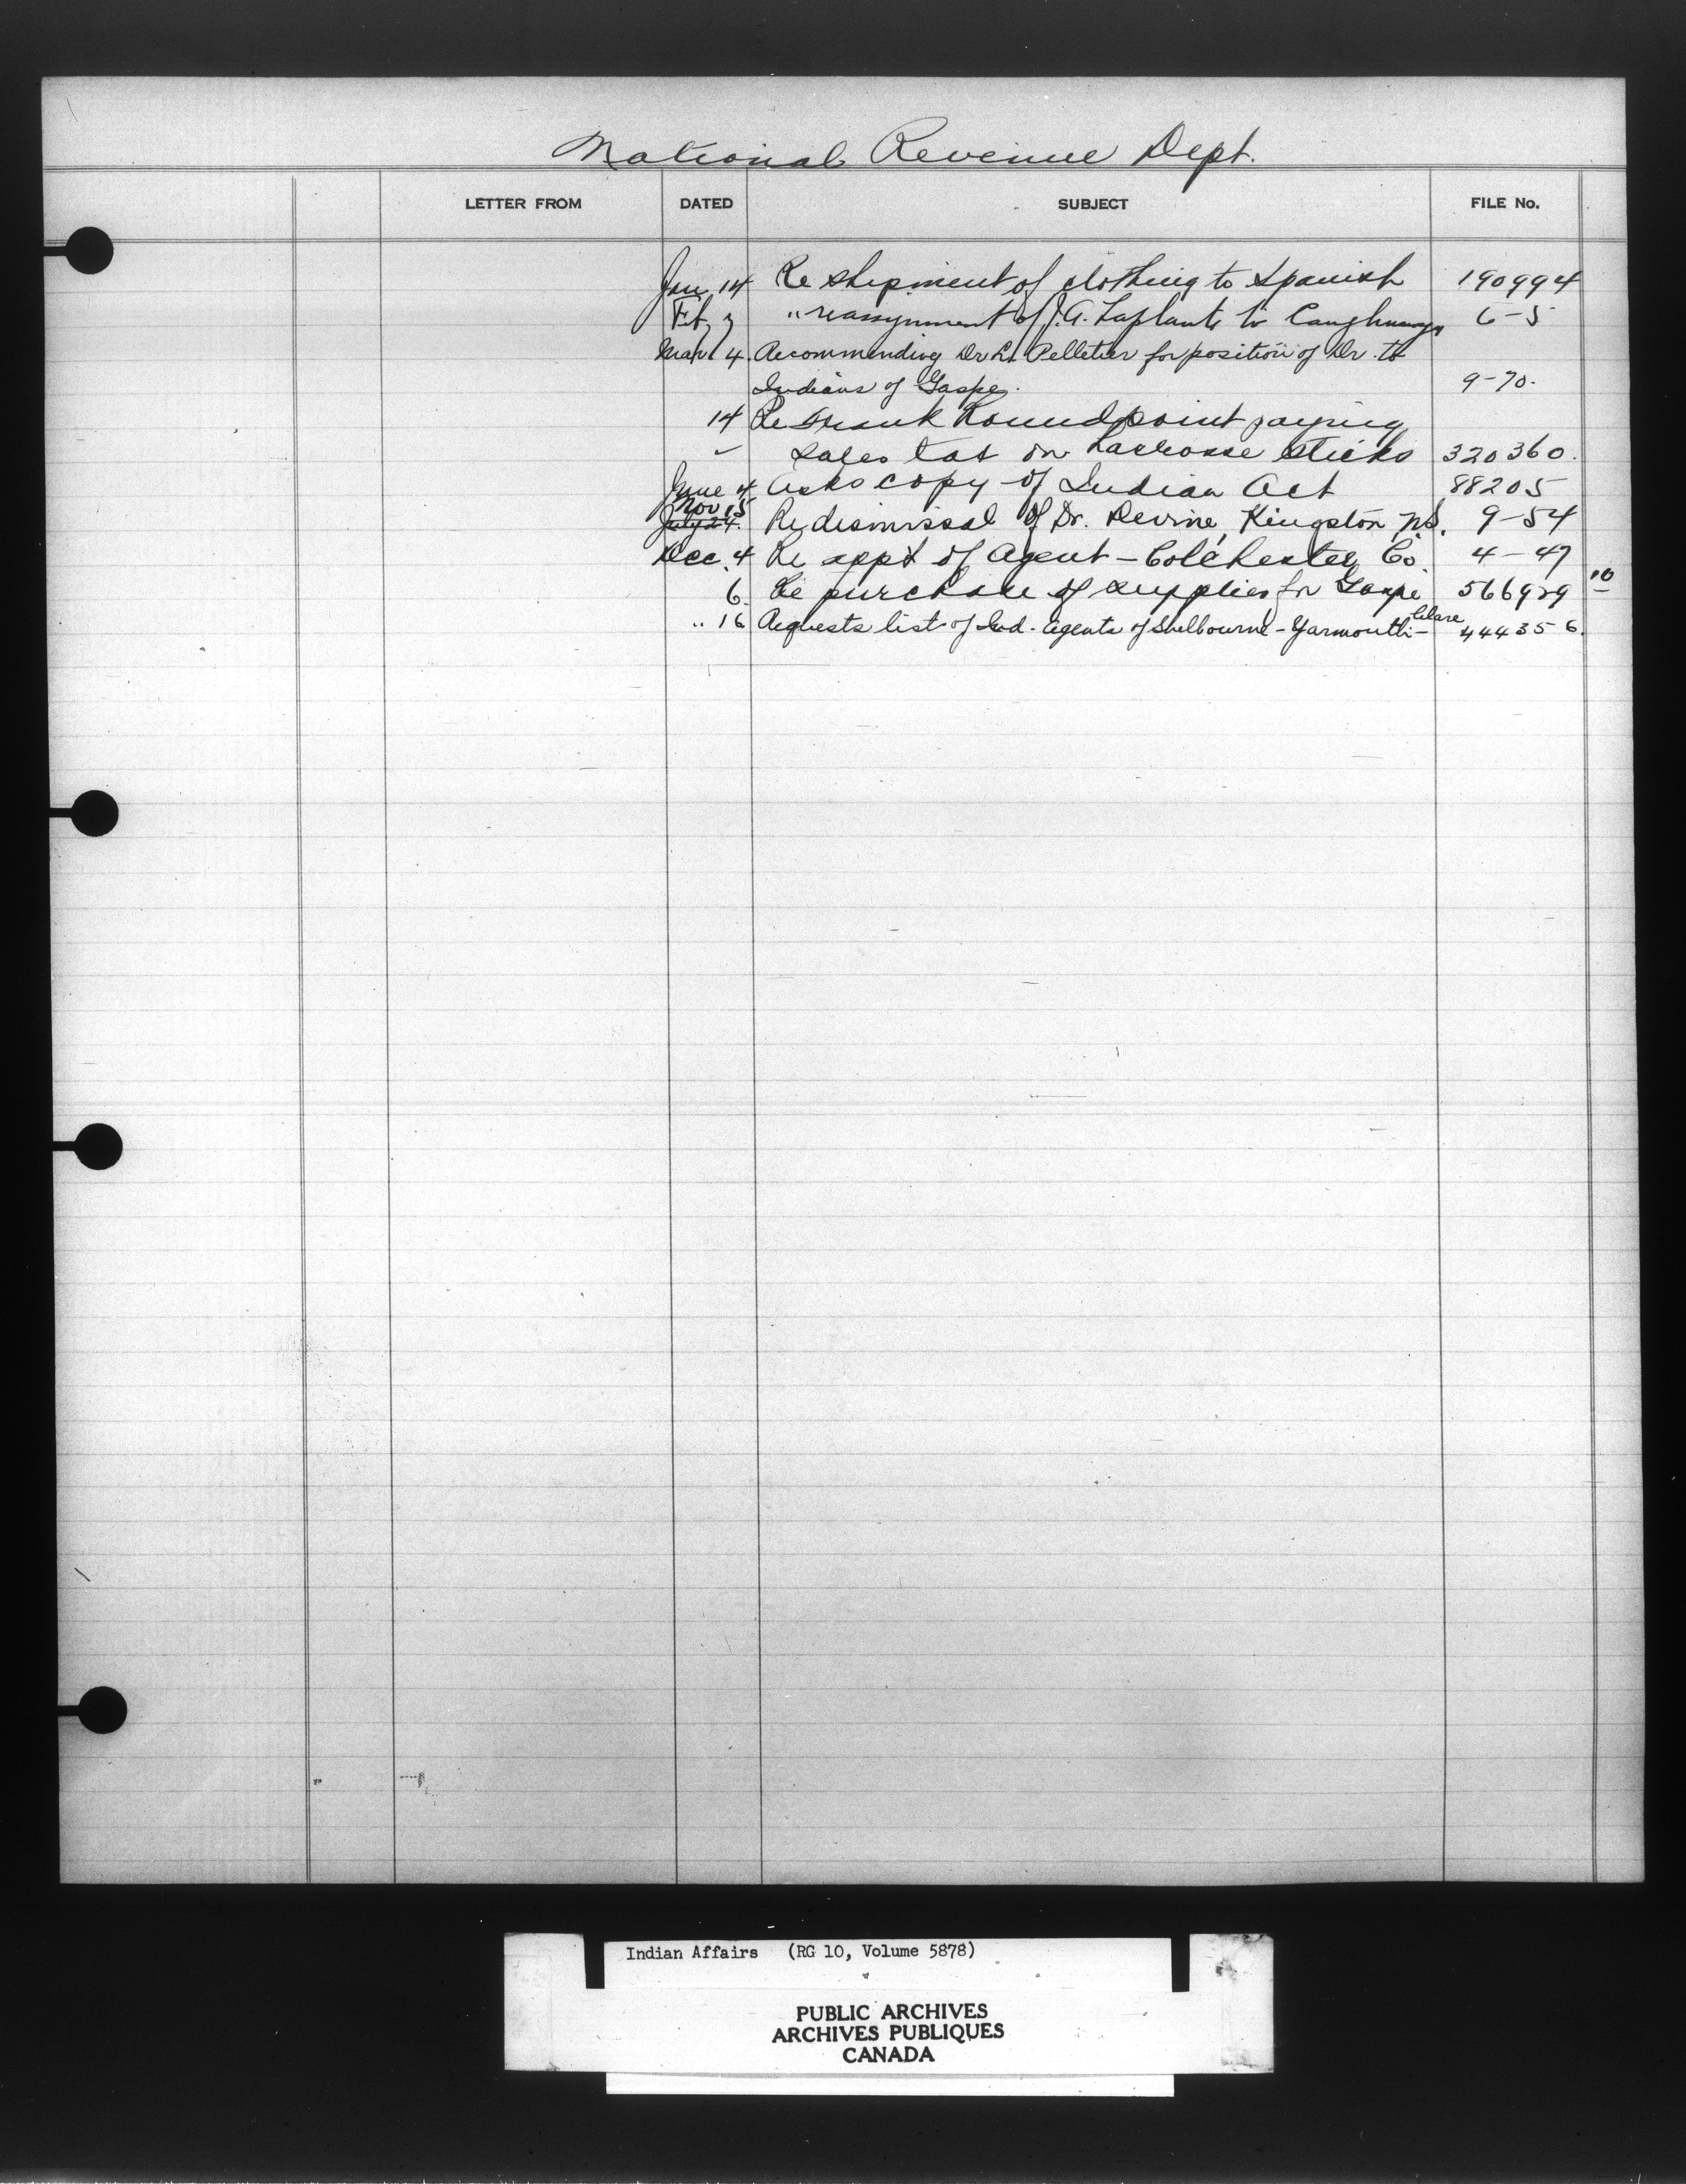 National Revenue Dept.
LETTER FROM DATED SUBJECT FILE No.
Jan 14 Re shipment of clothing to Spanish 190994
Feb 3 " reassignment of J.A. Laplante to Caughnawaga 6-5
Mar 4. Recommending Dr L. Pelletier for position of Dr. to
Indians of Gaspe. 9-70.
14 Re Frank Roundpoint paying
sales tax on Lacrosse sticks 320360.
June 4 Asks copy of Indian Act 88205
Nov 15
July 24. Re dismissal of Dr. Devine, Kingston N.S. 9-54
Dec. 4 Re appt of Agent - Colchester Co. 4-47
6. Re purchase of supplies for Gaspe 566929 10
" 16 Requests list of Ind. Agents of Shelbourne - Yarmouth - Clare 444356.
Indian Affairs (RG 10, Volume 5878)
PUBLIC ARCHIVES
ARCHIVES PUBLIQUES
CANADA